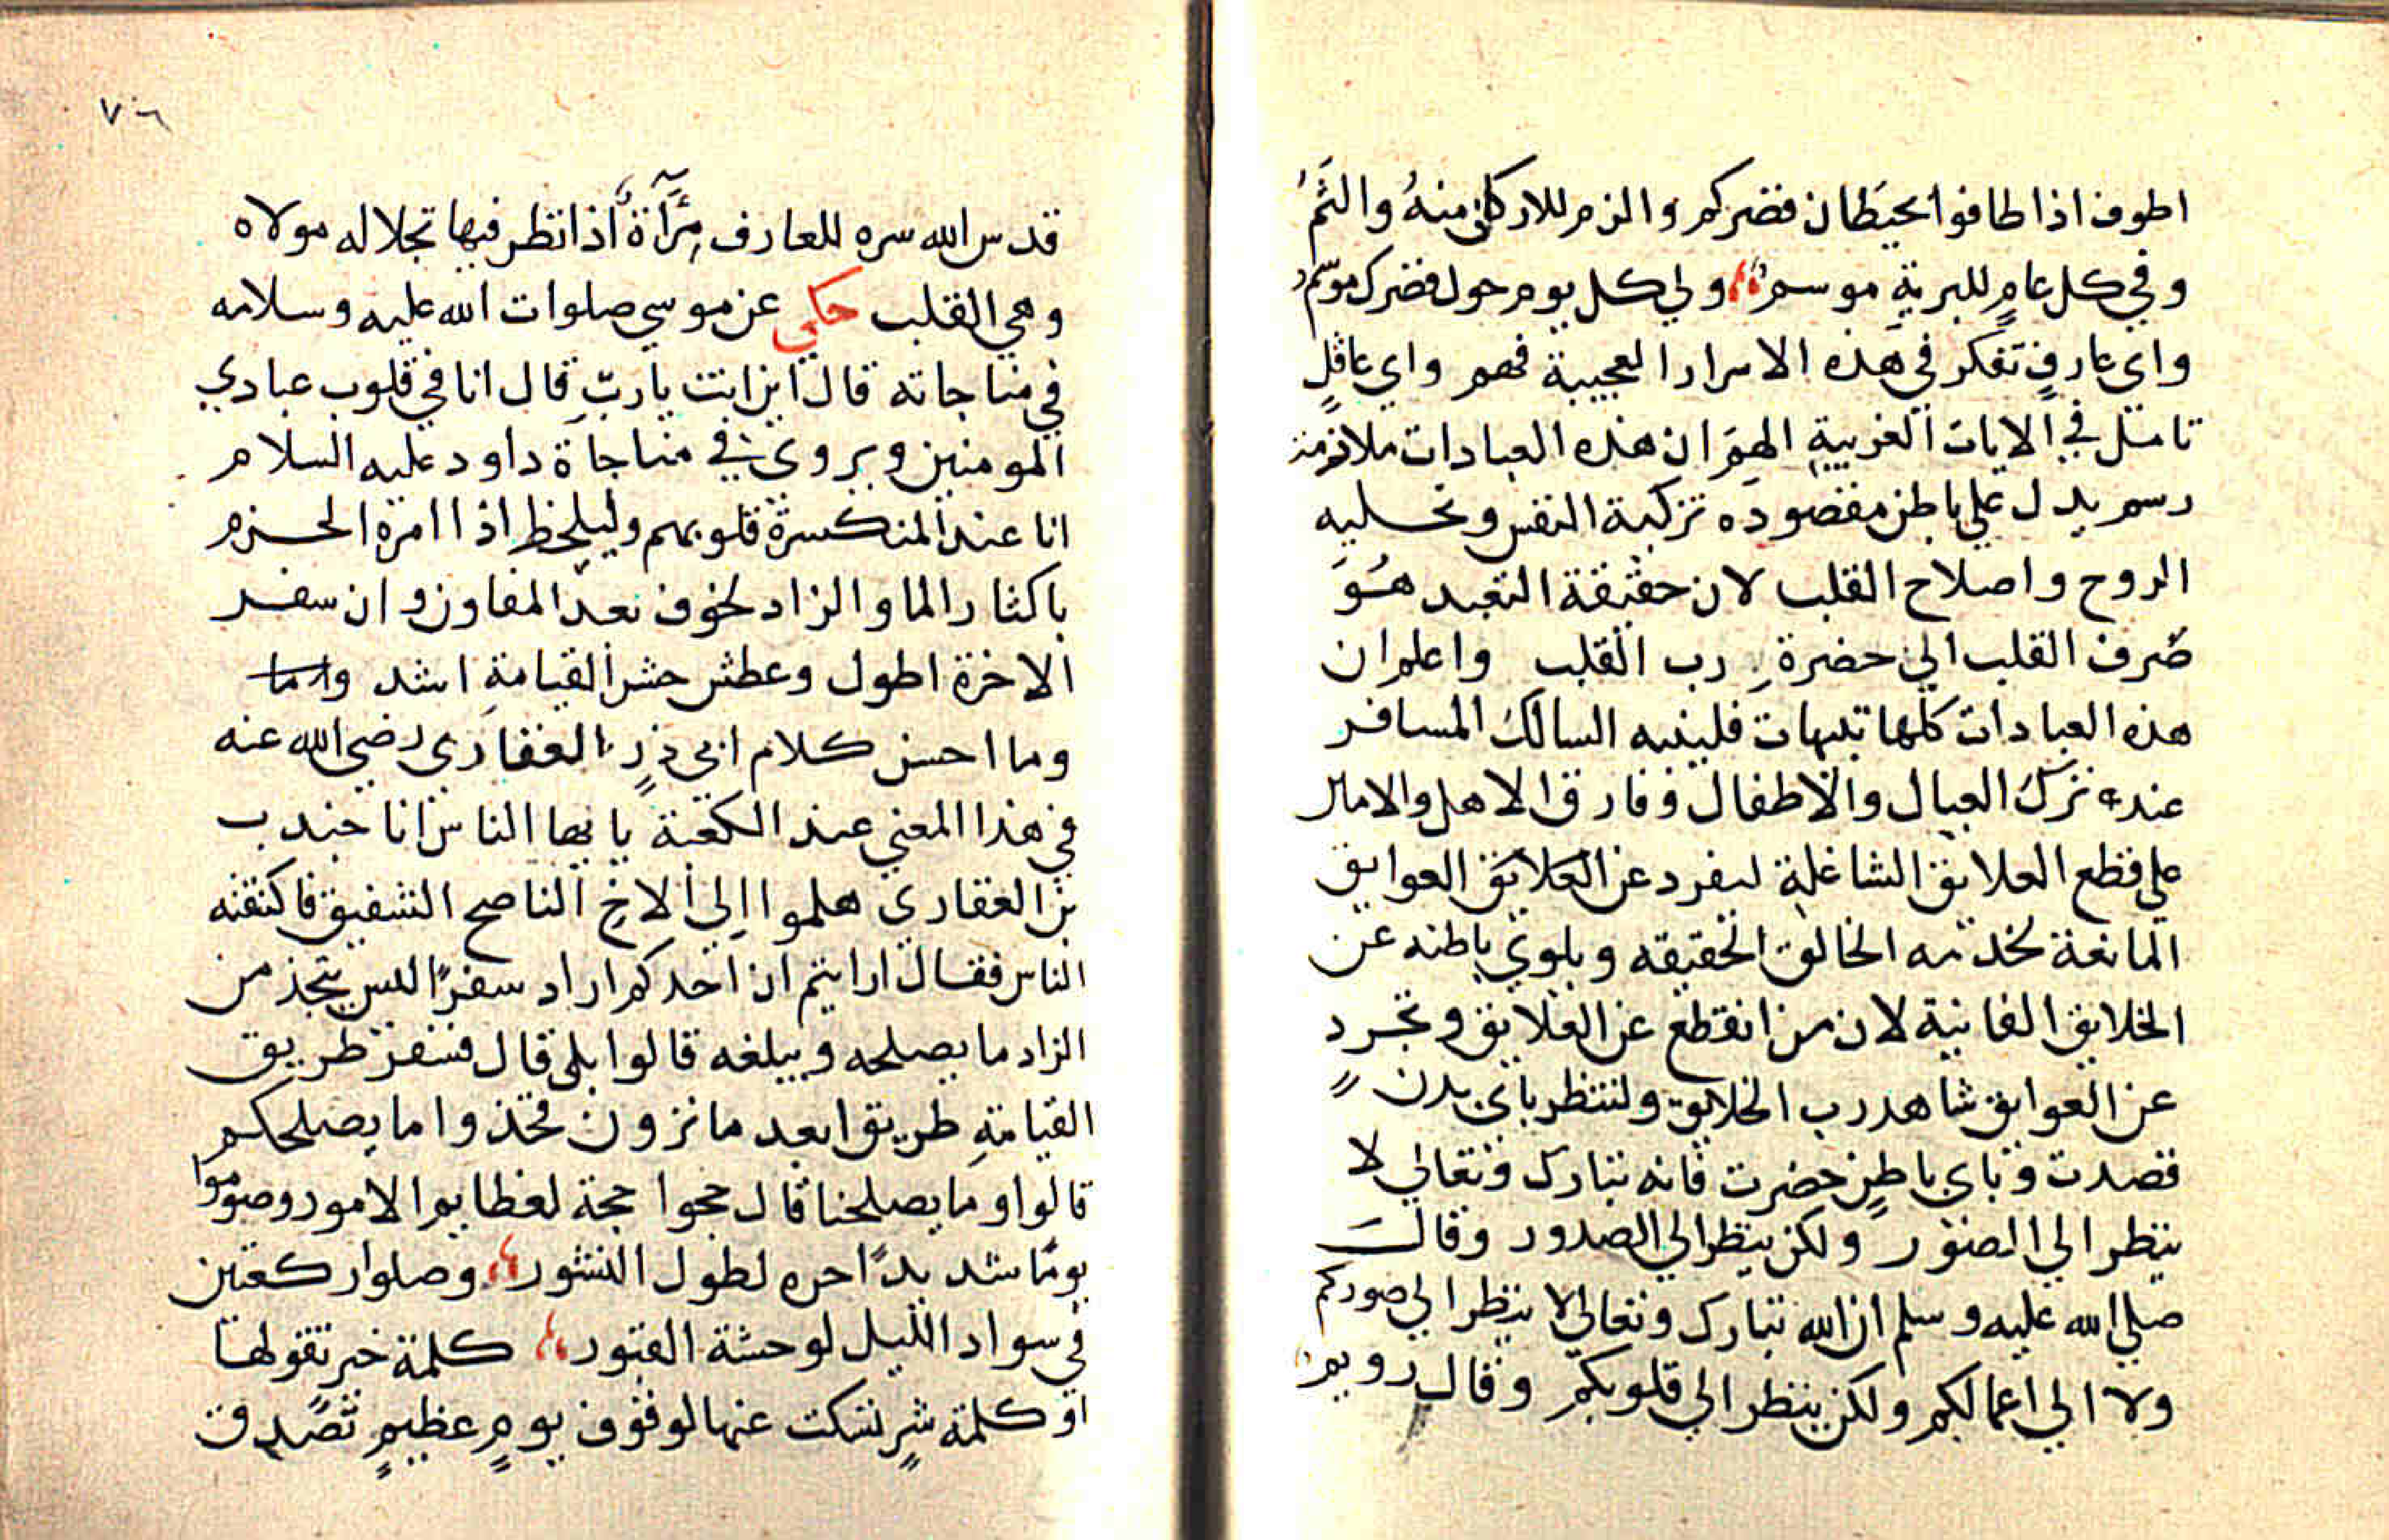 اطوف اذا طافوا بحيطان قصركم والزم للاركان منه والثم
وفي كل عام للبرية موسم ولي كل يوم حول قصرك موسم
واي عارف تفكر في هذه الاسرار العجيبة فهم واي عاقل
تامل في الايات الغريبة الهم ان هذه العبادات ملازمة
رسم يدل علي باطن مقصوده تزكية النفس وتحليه
الروح واصلاح القلب لان حقيقة التعبد هو
صرف القلب الي حضرة رب القلب واعلم ان
هذه العبادات كلها تنبيهات فلينبه السالك المسافر
عنده ترك العيال والاطفال وفارق الاهل والامال
علي قطع العلايق الشاغلة ليفرد عن العلايق العوايق
المانعة لخدمه الخالق الحقيقه ويلوي باطنه عن
الخلايق الفانية لان من انقطع عن العلايق وتجرد
عن العوايق شاهد رب الخلايق ولتنظر باي بدن
قصدت وباي باطن حضرت فانه تبارك وتعالي لا
ينظر الي الصور ولكن ينظر الي الصدور وقال
صلي الله عليه وسلم ان الله تبارك وتعالي لا ينظر الي صوركم
ولا الي اعمالكم ولكن ينظر الي قلوبكم وقال رويم
٧٠٦
قدس الله سره للعارف مرآة اذا نظر فيها تجلا له مولاه
وهي القلب حكي عن موسي صلوات الله عليه وسلامه
في مناجاته قال اين انت يا رب قال انا في قلوب عبادي
المومنين ويروي في مناجاة داود عليه السلام
انا عند المنكسرة قلوبهم وليلحظ اذا امره الحزم
باكثار الما والزاد لخوف بعد المفاوز وان سفر
الاخرة اطول وعطش حشر القيامة اشد واما
وما احسن كلام ابي ذر الغفاري رضي الله عنه
في هذا المعني عند الكعبة يا يها الناس انا جندب
بن الغفاري هلموا الي الاخ الناصح الشفيق فاكتنفه
الناس فقال ارايتم ان احدكم اراد سفرا اليس يتخذ من
الزاد ما يصلحه ويبلغه قالوا بلي قال فسفر طريق
القيامة طريق ابعد ما تزون فتخذوا ما يصلحكم
قالوا وما يصلحنا قال حجوا حجة لعظايم الامور وصوموا
يوما شديدا حره لطول النشور وصلوا ركعتين
في سواد الليل لوحشة القبور كلمة خير تقولها
او كلمة شر تسكت عنها لوقوف يوم عظيم تصدق